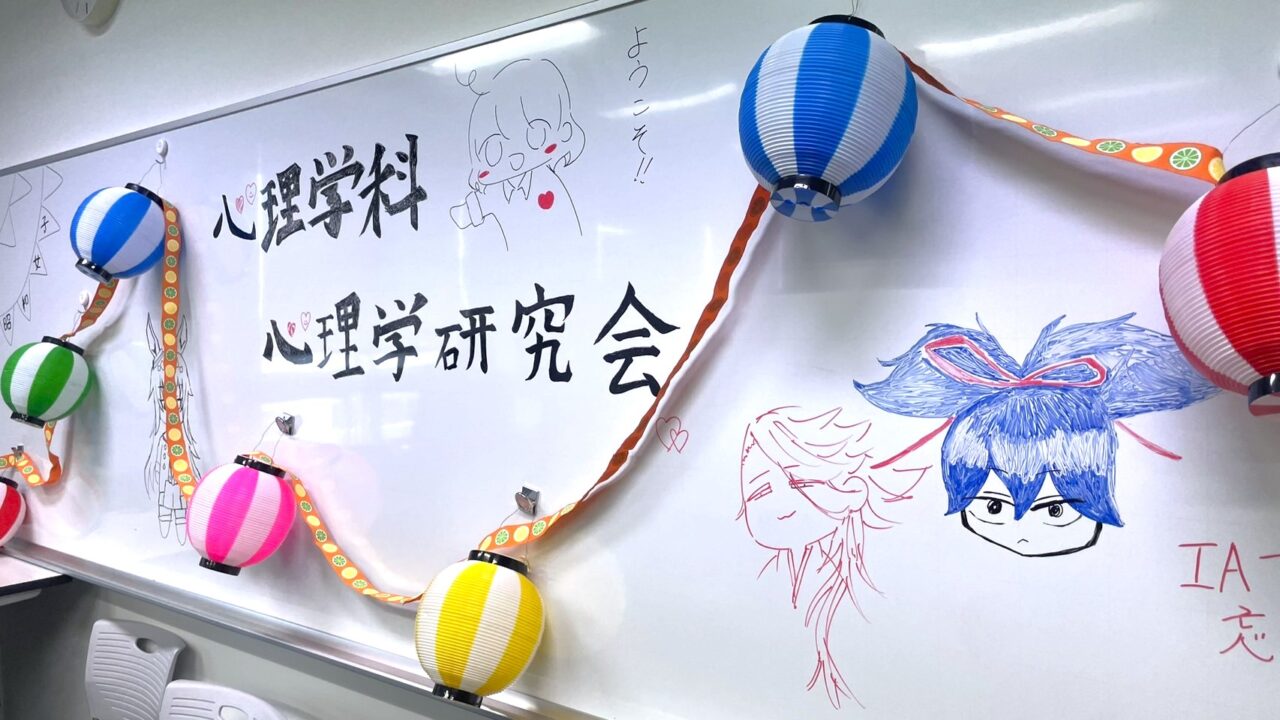 昭
和
女
子
心理学科
心理学研究会
ようこそ!!
IA